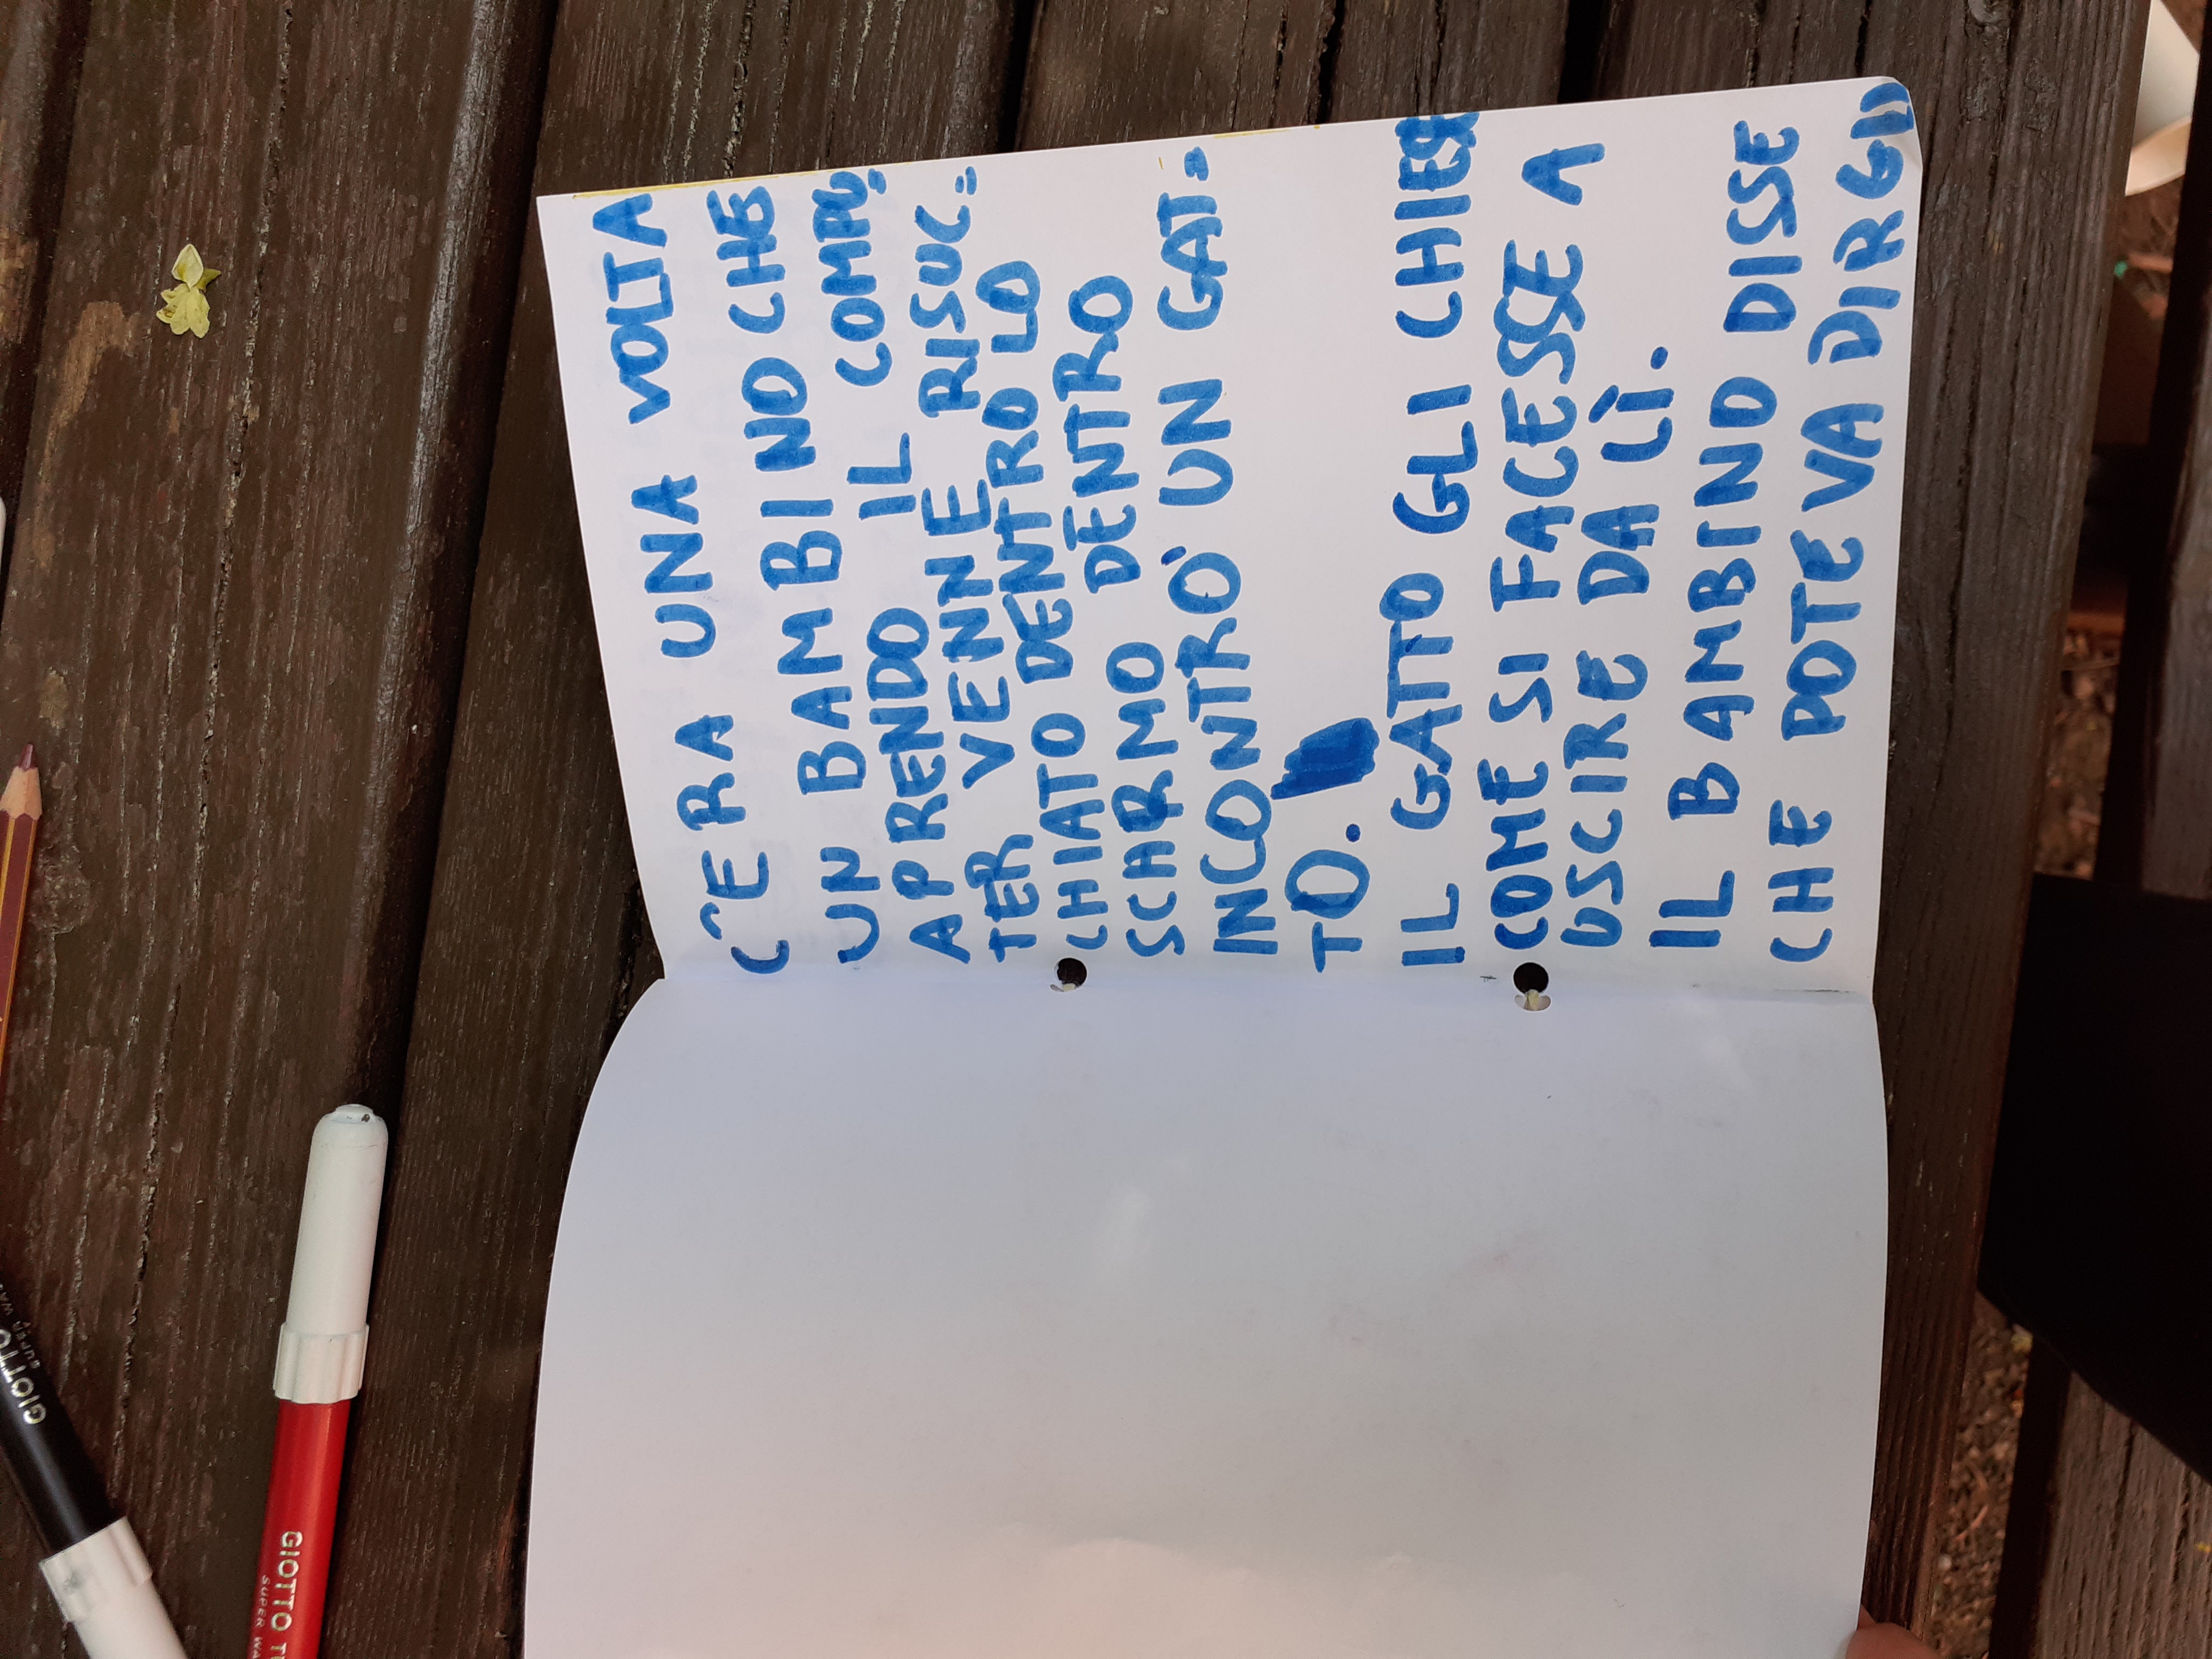 C'ERA UNA VOLTA
UN BAMBINO CHE
APRENDO IL COMPU=
TER VENNE RISUC=
CHIATO DENTRO LO
SCHERMO DENTRO
INCONTRÒ UN GAT=
TO.
IL GATTO GLI CHIESE
COME SI FACESSE A
USCIRE DA LÌ.
IL BAMBINO DISSE
CHE POTEVA DIRGLI
GIOTTO T
SUPER WA
GIOTTO
SUPER WA